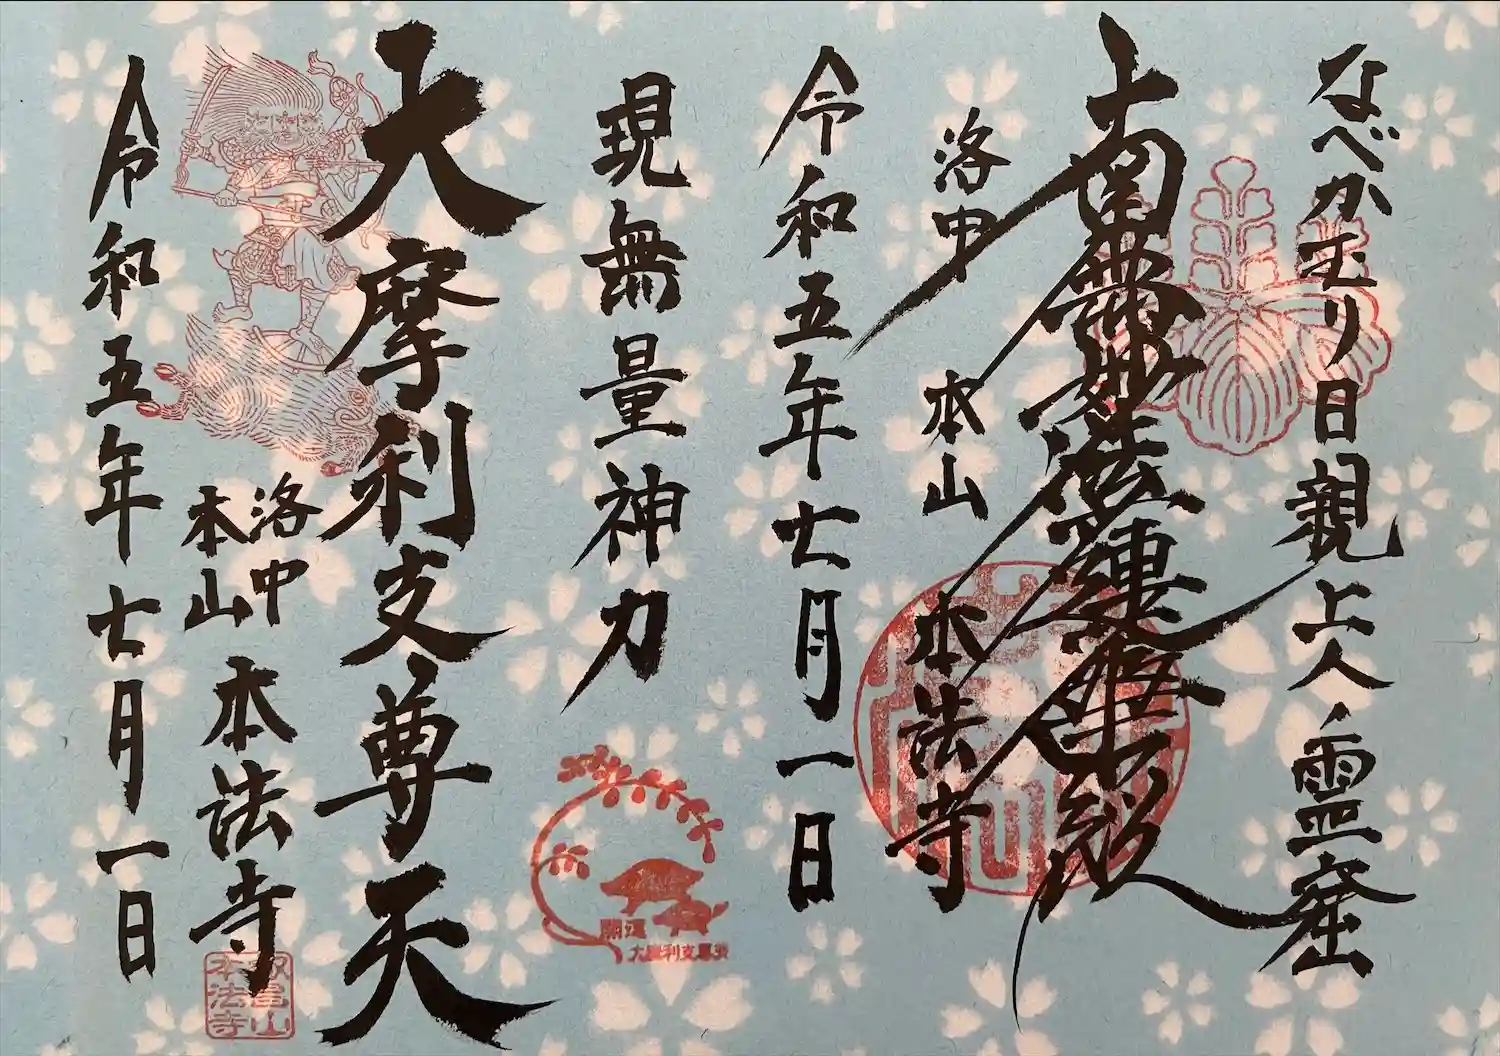 なべかむり日親上人霊窟
南無妙法蓮華経
洛中 本山 本法寺
令和五年七月一日
現無量神力
開運
大摩利支尊天
大摩利支尊天
洛中
本山
本法寺
叡昌山
本法寺
令和五年七月一日